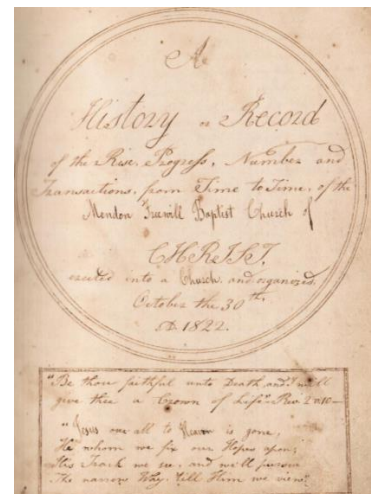 A
History or Record
of the Rise, Progress, Number and
Transactions, from Time to Time, of the
Mendon Freewill Baptist Church of
CHRIST,
erected into a Church, and organized
October the 30th,
AD 1822.
"Be thou faithful unto Death, and I will
give thee a Crown of Life" Rev 2 v10—
"Jesus our all to Heaven is gone,
He whom we fix our Hopes upon;
His Track we see, and we'll pursue
The narrow Way, till Him we view."